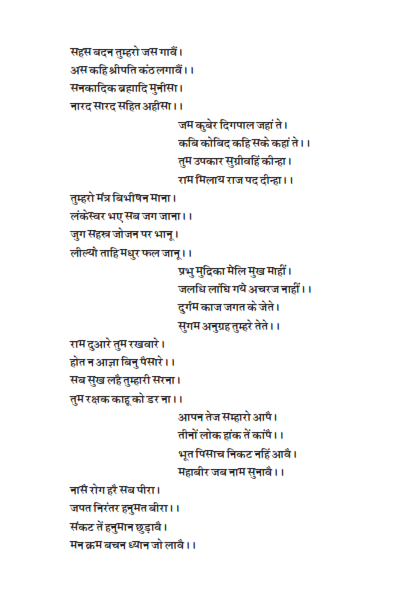 सहस बदन तुम्हरो जस गावैं।
अस कहि श्रीपति कंठ लगावैं।।
सनकादिक ब्रह्मादि मुनीसा।
नारद सारद सहित अहीसा।।
जम कुबेर दिगपाल जहां ते।
कबि कोबिद कहि सके कहां ते।।
तुम उपकार सुग्रीवहिं कीन्हा।
राम मिलाय राज पद दीन्हा।।
तुम्हरो मंत्र बिभीषन माना।
लंकेस्वर भए सब जग जाना।।
जुग सहस्र जोजन पर भानू।
लील्यौ ताहि मधुर फल जानू।।
प्रभु मुद्रिका मेलि मुख माहीं।
जलधि लांघि गये अचरज नाहीं।।
दुर्गम काज जगत के जेते।
सुगम अनुग्रह तुम्हरे तेते।।
राम दुआरे तुम रखवारे।
होत न आज्ञा बिनु पैसारे।।
सब सुख लहै तुम्हारी सरना।
तुम रक्षक काहू को डर ना।।
आपन तेज सम्हारो आपै।
तीनों लोक हांक तें कांपै।।
भूत पिसाच निकट नहिं आवै।
महाबीर जब नाम सुनावै।।
नासै रोग हरै सब पीरा।
जपत निरंतर हनुमत बीरा।।
संकट तें हनुमान छुड़ावै।
मन क्रम बचन ध्यान जो लावै।।